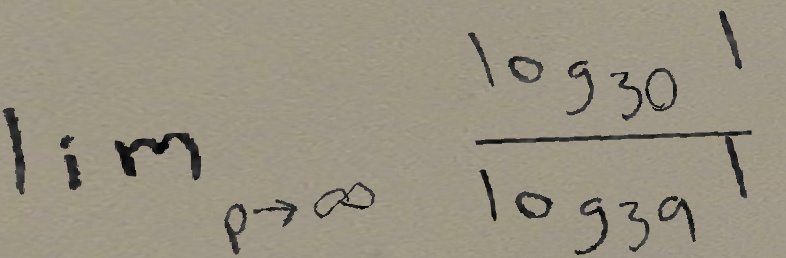 lim_{p→∞} \frac{log_{30} 1}{log_{39} 1}